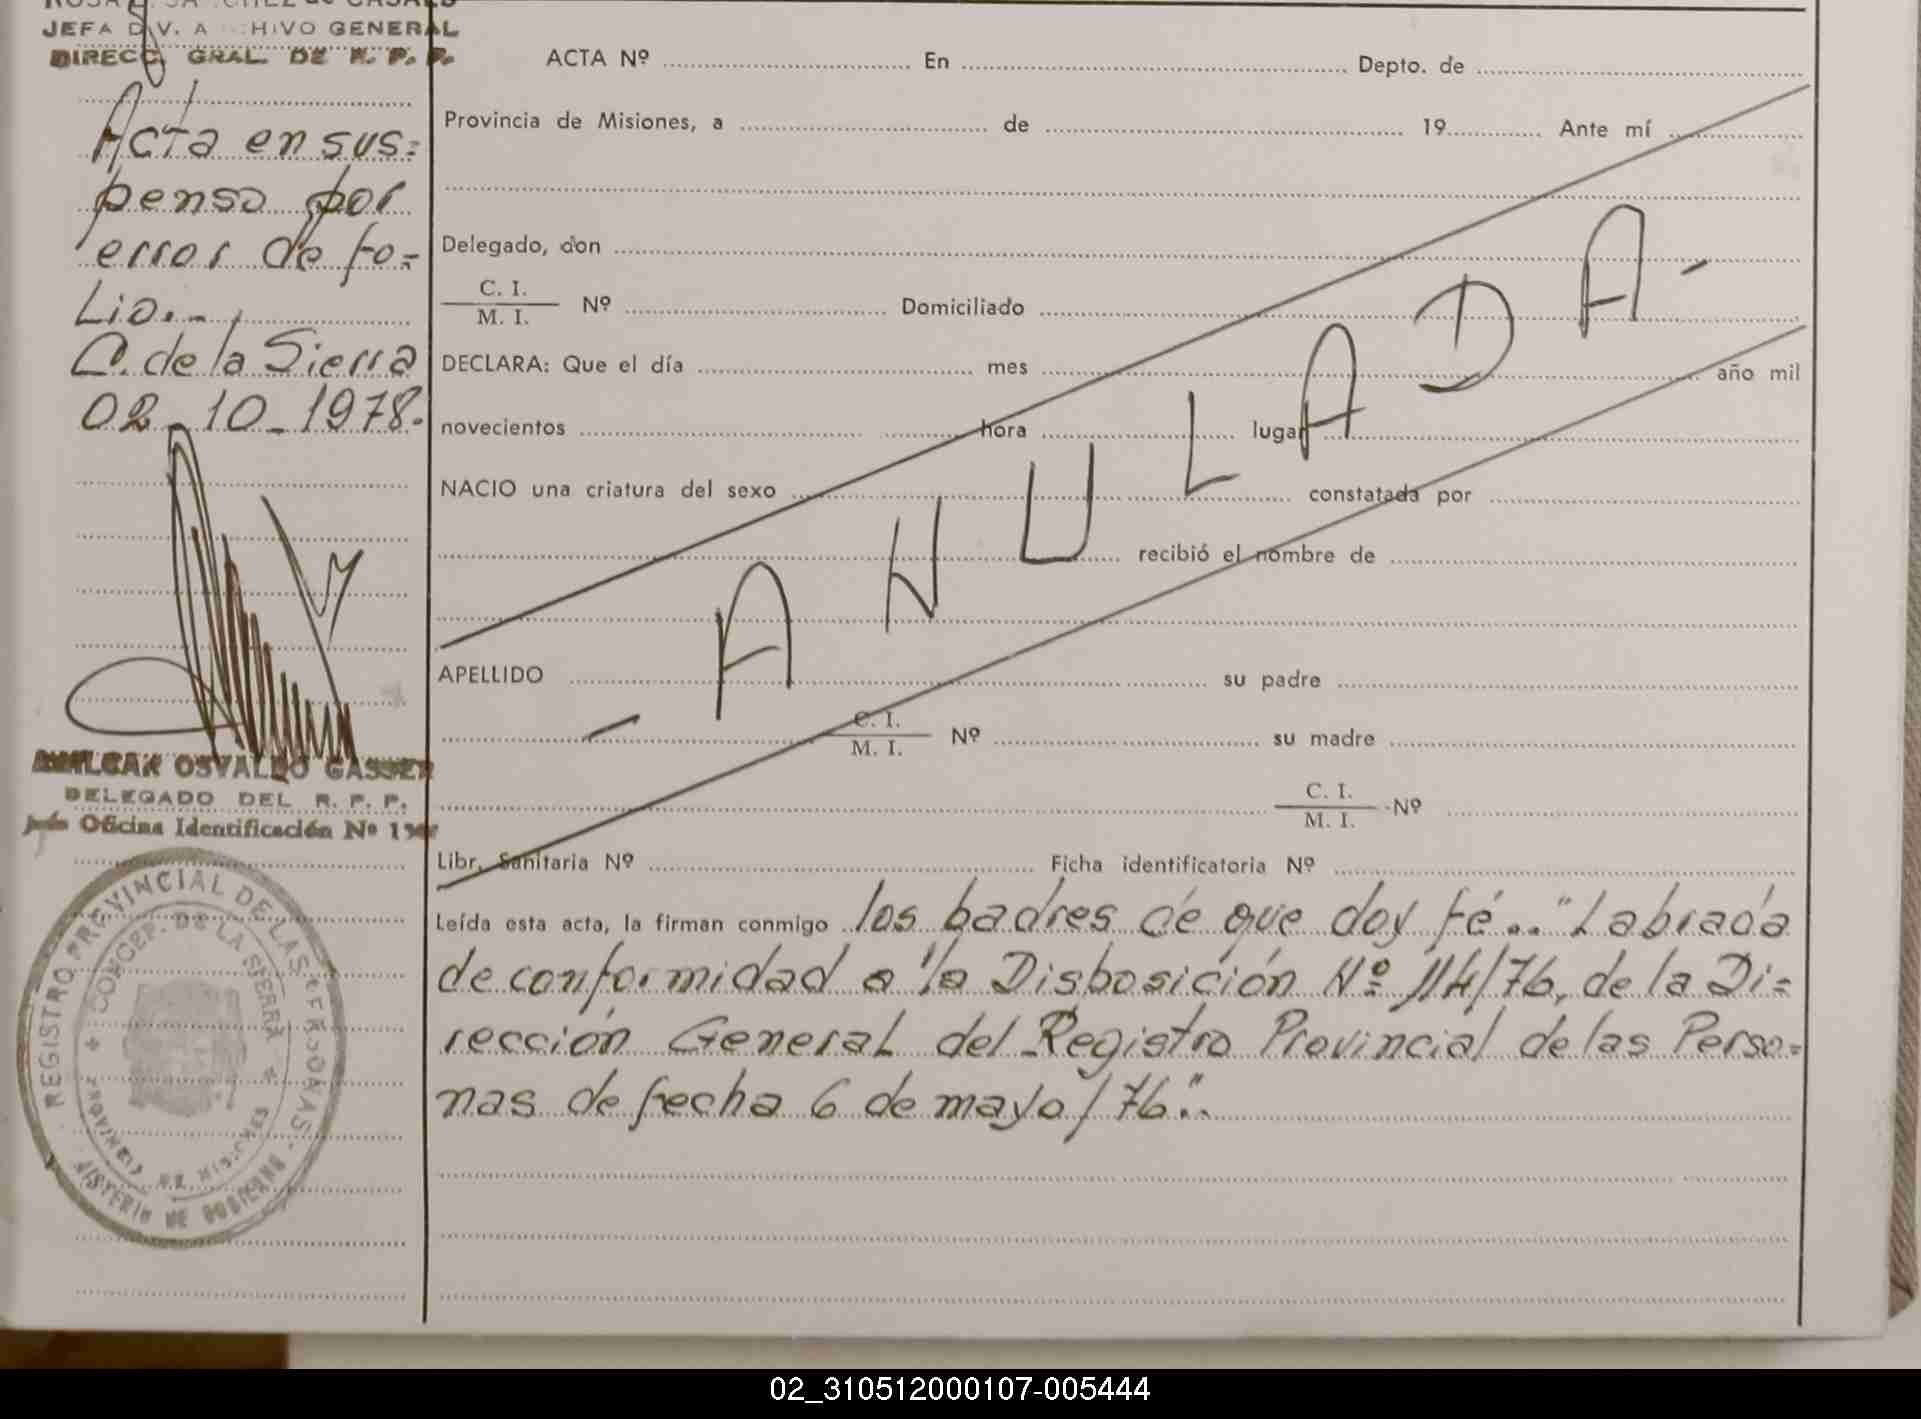 JEFA DIV. ARCHIVO GENERAL
DIRECC. GRAL. DE R. P. P.
Acta en sus=
penso por
error de fo=
Lio.-
C. de la Sierra
02-10-1978.
AMILCAR OSVALDO GASSER
DELEGADO DEL R. P. P.
Oficina Identificación Nº
REGISTRO PROVINCIAL DE LAS PERSONAS
MINISTERIO DE GOBIERNO
CONCEP. DE LA SIERRA
PROVINCIA DE MISIONES
ACTA Nº En Depto. de
Provincia de Misiones, a de 19 Ante mí
Delegado, don
C. I.
M. I. Nº Domiciliado
DECLARA: Que el día mes año mil
novecientos hora lugar
NACIO una criatura del sexo constatada por
recibió el nombre de
APELLIDO su padre
C. I.
M. I. Nº su madre
C. I.
M. I. Nº
- ANULADA -
Libr. Sanitaria Nº Ficha identificatoria Nº
Leída esta acta, la firman conmigo los padres de que doy fé.. "Labrada
de conformidad a la Disposición Nº 114/76, de la Di=
rección General del Registro Provincial de las Perso=
nas de fecha 6 de mayo/76"..
02_310512000107-005444